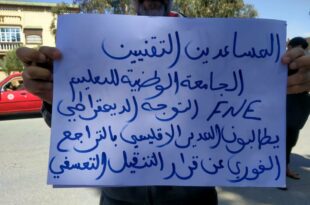 المساعدين التقنيين
الجامعة الوطنية للتعليم
FNE التوجه الديمقراطي
يطالبون المدير الاقليمي بالتراجع
الفوري عن قرار التنقيل التعسفي